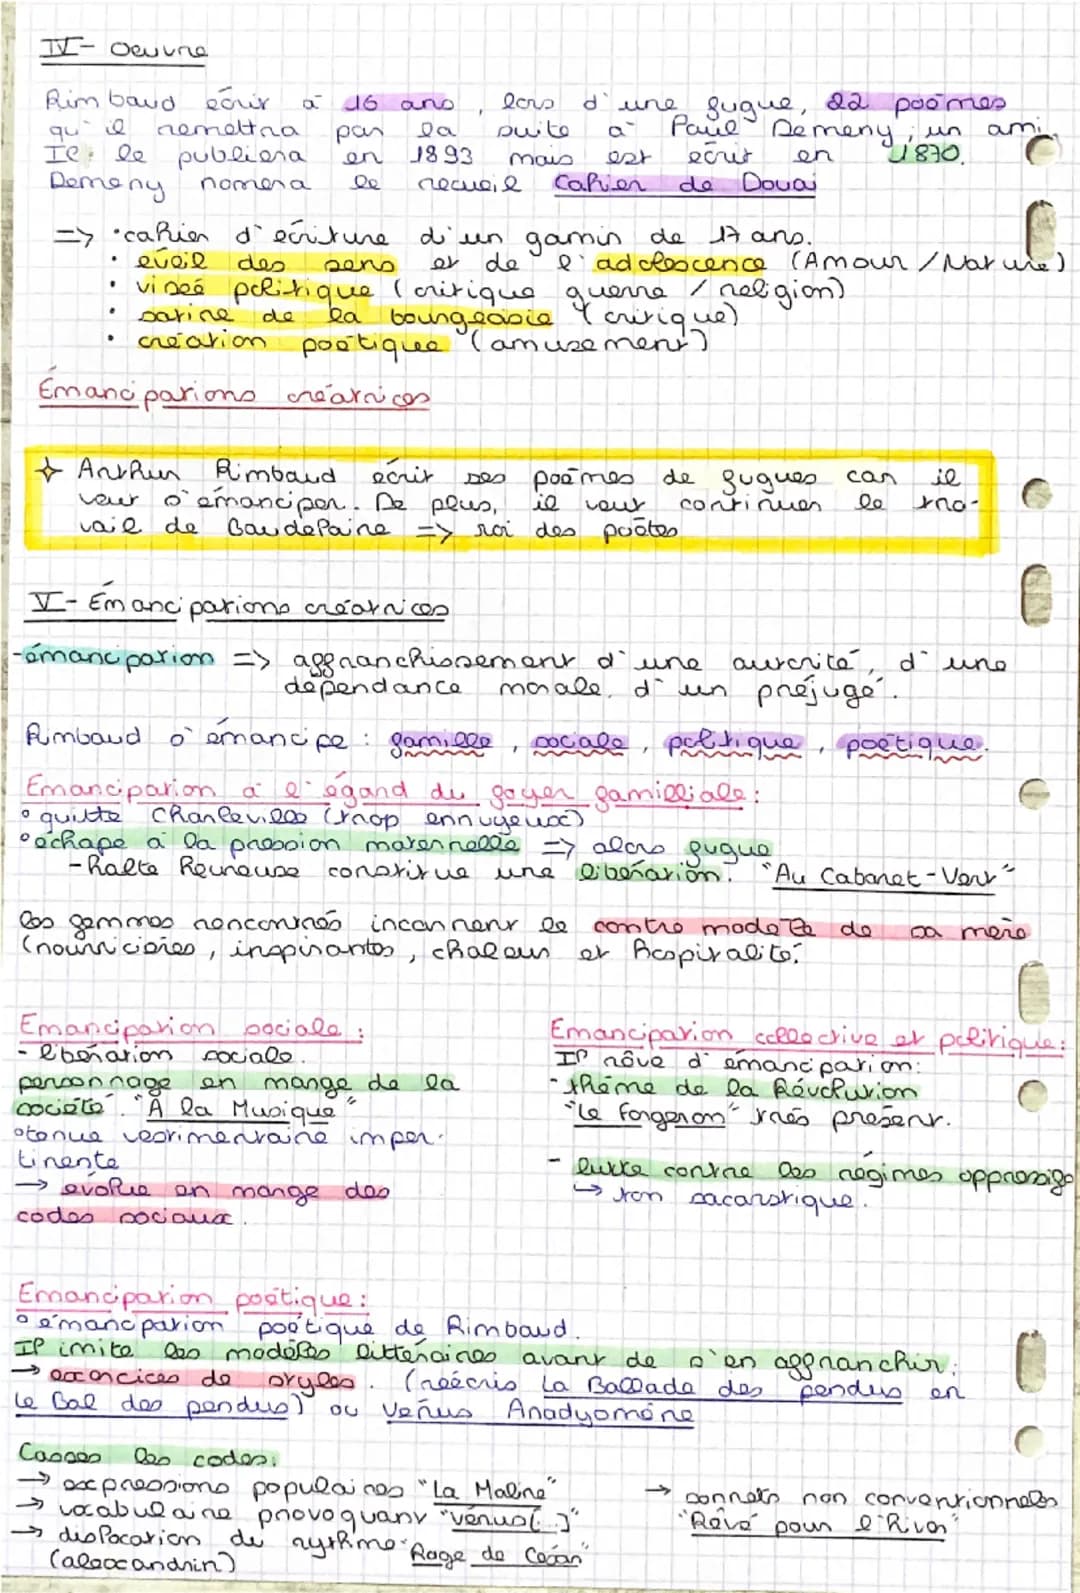 IV- Oeuvre
Rimbaud écrit à 16 ans, lors d'une fugue, 22 poèmes
qu'il remettra par la suite à Paul Demeny, un ami.
Il le publiera en 1893 mais est écrit en 1870.
Demeny nomera le recueil Cahier de Douai
=> • cahier d'écriture d'un gamin de 17 ans.
• éveil des sens et de l'adolescence (Amour / Nature)
• viseé politique (critique guerre / religion)
• satire de la bourgeoisie (critique)
• création poétique (amusement)
Émancipations créatrices
✧ Arthur Rimbaud écrit ses poèmes de fugues car il
veut s'émanciper. De plus, il veut continuer le tra-
vail de Baudelaire => roi des poètes
V- Émancipations créatrices
-émancipation => affranchissement d'une autorité, d'une
dépendance morale, d'un préjugé.
Rimbaud s'émancipe : famille, sociale, politique, poétique.
Emancipation à l'égard du foyer familliale :
° quitte Charleville (trop ennuyeux)
° échape à la pression maternelle => alors fugue
- halte heureuse constitue une libération. "Au Cabaret-Vert"
les femmes rencontrés incarnent le contre modèle de sa mère
(nourricières, inspirantes, chaleur et hospitalité.
Emancipation sociale :
- libération sociale.
personnage en marge de la
société. "À la Musique"
° tenue vestimentaire imper-
tinente
→ évolue en marge des
codes sociaux.
Emancipation collective et politique :
Il rêve d'émancipation:
- thème de la Révolution
"Le Forgeron" très présent.
- lutte contre les régimes oppressifs
↳ ton sacarstique.
Emancipation poétique :
° émancipation poétique de Rimbaud.
Il imite les modèles littéraires avant de s'en affranchir :
→ exercices de styles. (réécris La Ballade des pendus en
Le Bal des pendus) ou Venus Anadyomène
Casses les codes:
→ expressions populaires "La Maline"
→ vocabulaire provoquant "Vénus [...]"
→ dislocation du rythme "Rage de Cesar"
(alexandrin)
→ sonnets non conventionnels
"Rêvé pour l'hiver"